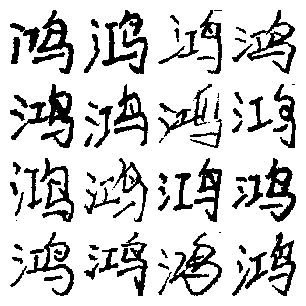 鸿鸿鸿鸿
鸿鸿鸿鸿
鸿鸿鸿鸿
鸿鸿鸿鸿